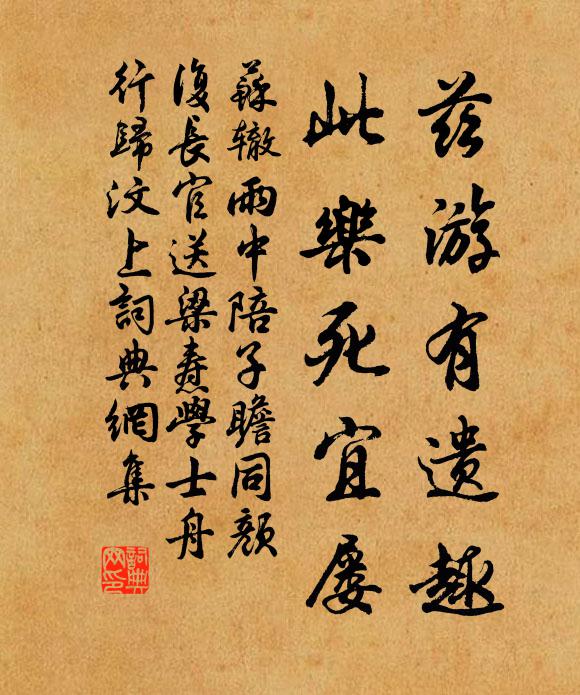 茲游有遺趣
此樂死宜屡
蘇辙雨中陪子瞻同顏
復長官送梁燾學士舟
行歸汶上詞典網集
詞典网印